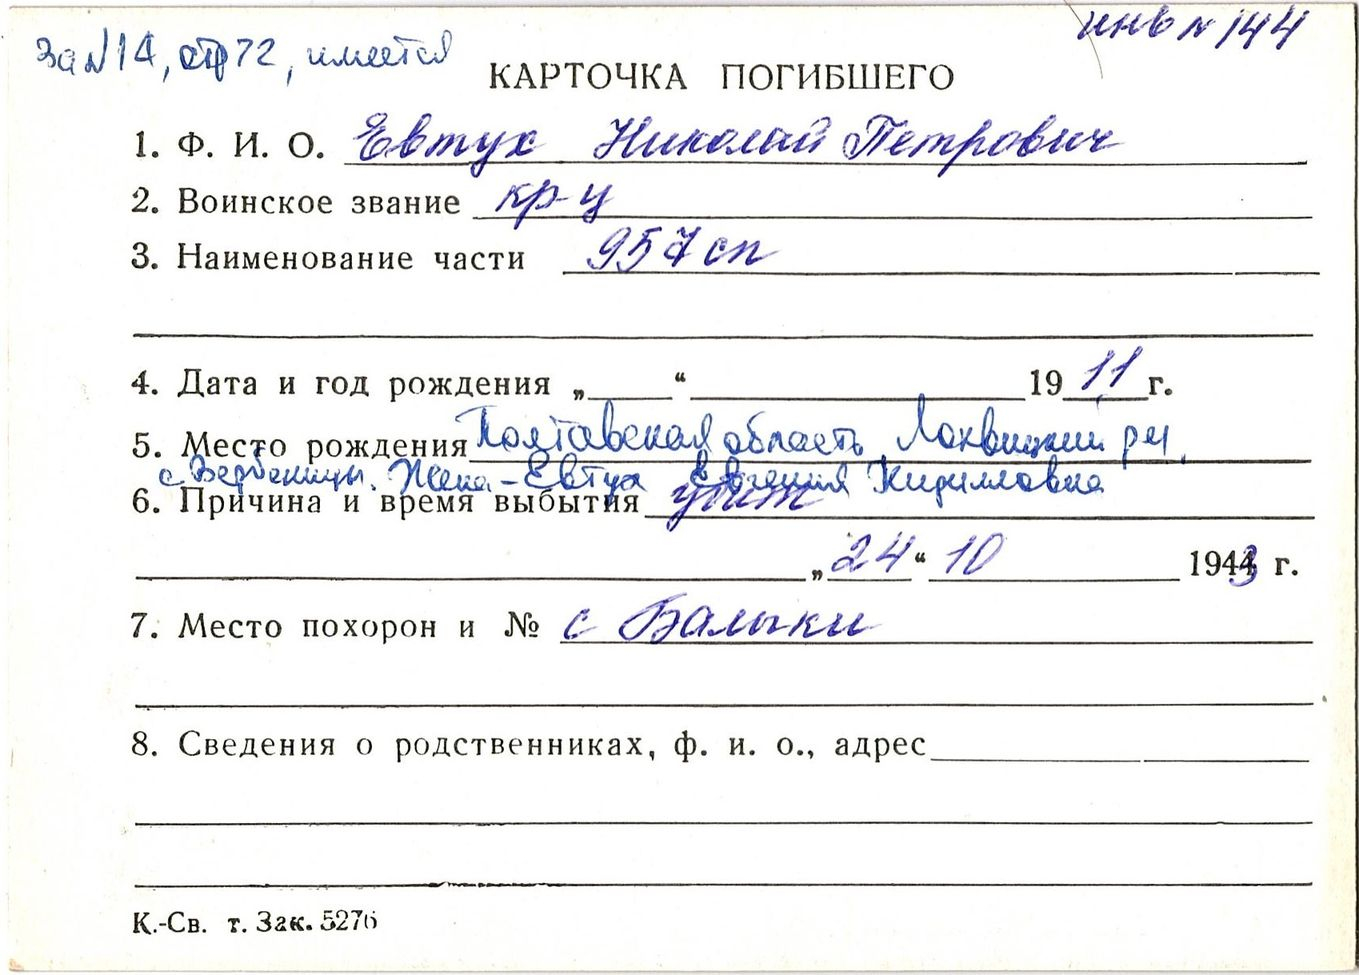 За №14, стр 72, имеется
инв № 144
КАРТОЧКА ПОГИБШЕГО
1. Ф. И. О. Евтух Николай Петрович
2. Воинское звание кр-ц
3. Наименование части 957 сп
4. Дата и год рождения „ “ 1911 г.
5. Место рождения Полтавская область Лохвицкий р-н,
с Вербеницы. Жена - Евтух Евгения Кирилловна
6. Причина и время выбытия убит
„24“ 10 1943 г.
7. Место похорон и № с Балыки
8. Сведения о родственниках, ф. и. о., адрес
К.-Св. т. Зак. 5276